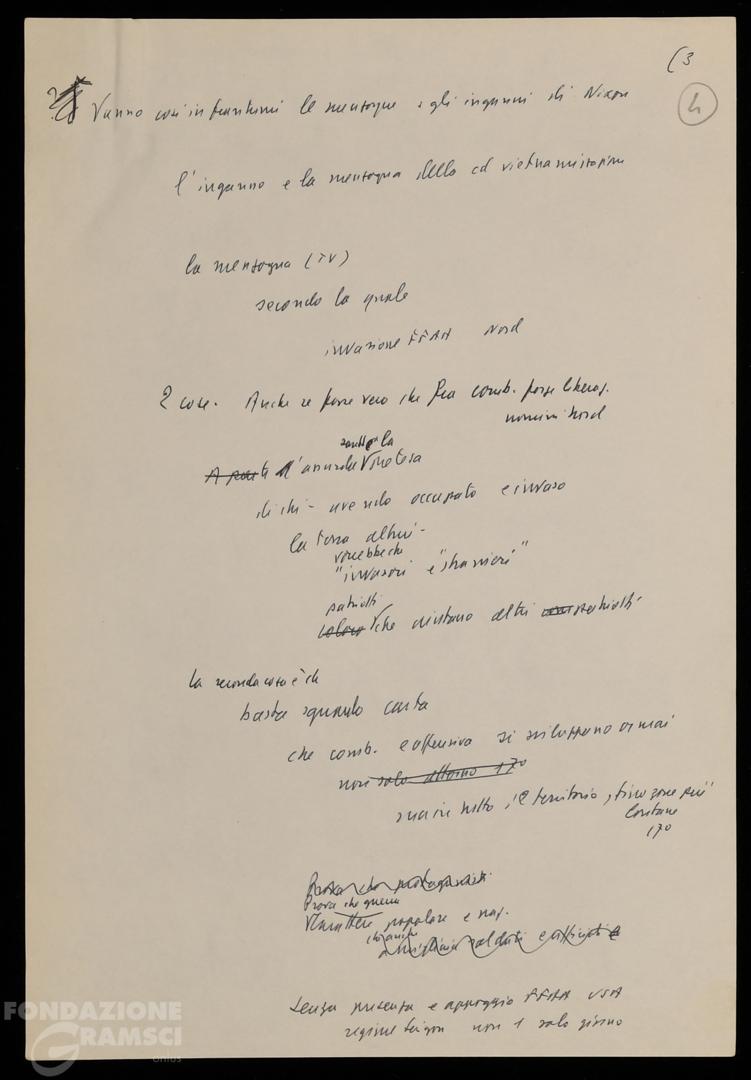 (3
4
Vanno così in frantumi le menzogne e gli inganni di Nixon
l'inganno e la menzogna della cd vietnamizzazione
la menzogna (TV)
secondo la quale
invasione FFAA Nord
2 cose. Anche se fosse vero che fra comb. forze liberaz.
uomini Nord
la
A parte l'assurda pretesa
di chi - avendo occupato e invaso
la terra altrui -
vorrebbe che
"invasori" e "stranieri"
patrioti
coloro che aiutano altri patrioti
la seconda cosa è che
basta sguardo carta
che comb. e offensiva si sviluppano ormai
non solo attorno 17º
ma in tutto il territorio, fino zone più
lontane
17º
Prova che guerra
carattere popolare e naz.
a migliaia soldati e ufficiali
Senza presenza e appoggio FFAA USA
regime Saigon non 1 solo giorno
FONDAZIONE
GRAMSCI
onlus